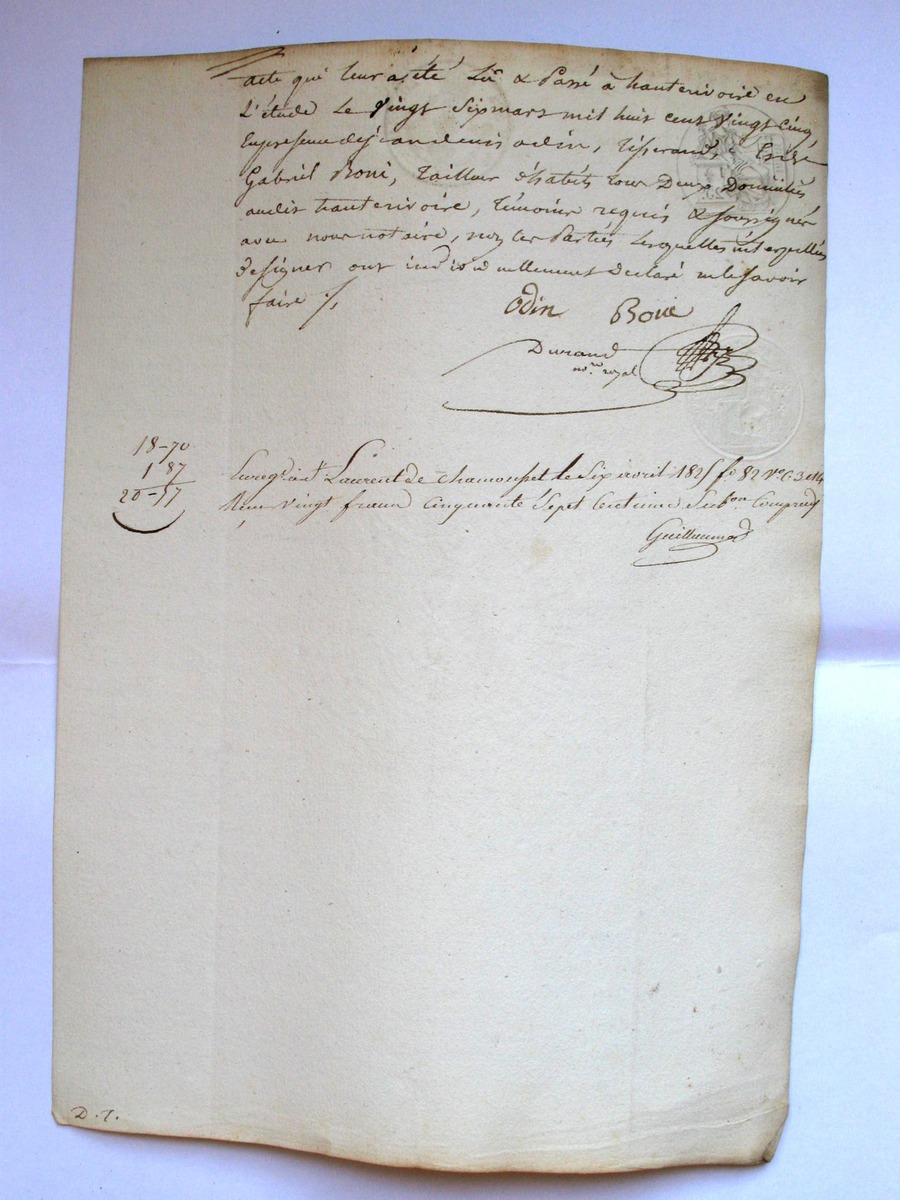 acte qui leur a été Lu & Passé à hauterivoire en
L'étude Le Vingt Six mars mil huit cent Vingt Cinq
En presence de jean denis odin, Tisserand, &
Gabriel Boné, Tailleur d'habits tous Deux Domiciliés
audit hauterivoire, témoins requis & soussignés
avec nous notaire, non les Parties Lesquelles interpellés
de signer ont individuellement declaré ne le savoir
faire ./.
Odin Boné
Durand
no.re royal
18-70
1 87
20-57
Enreg. à St Laurent de Chamousset le Six avril 1825 fo 82 Vo C 3 et 4
Reçu Vingt francs Cinquante Sept Centimes Subon Compris
Guillaumod
D. T.